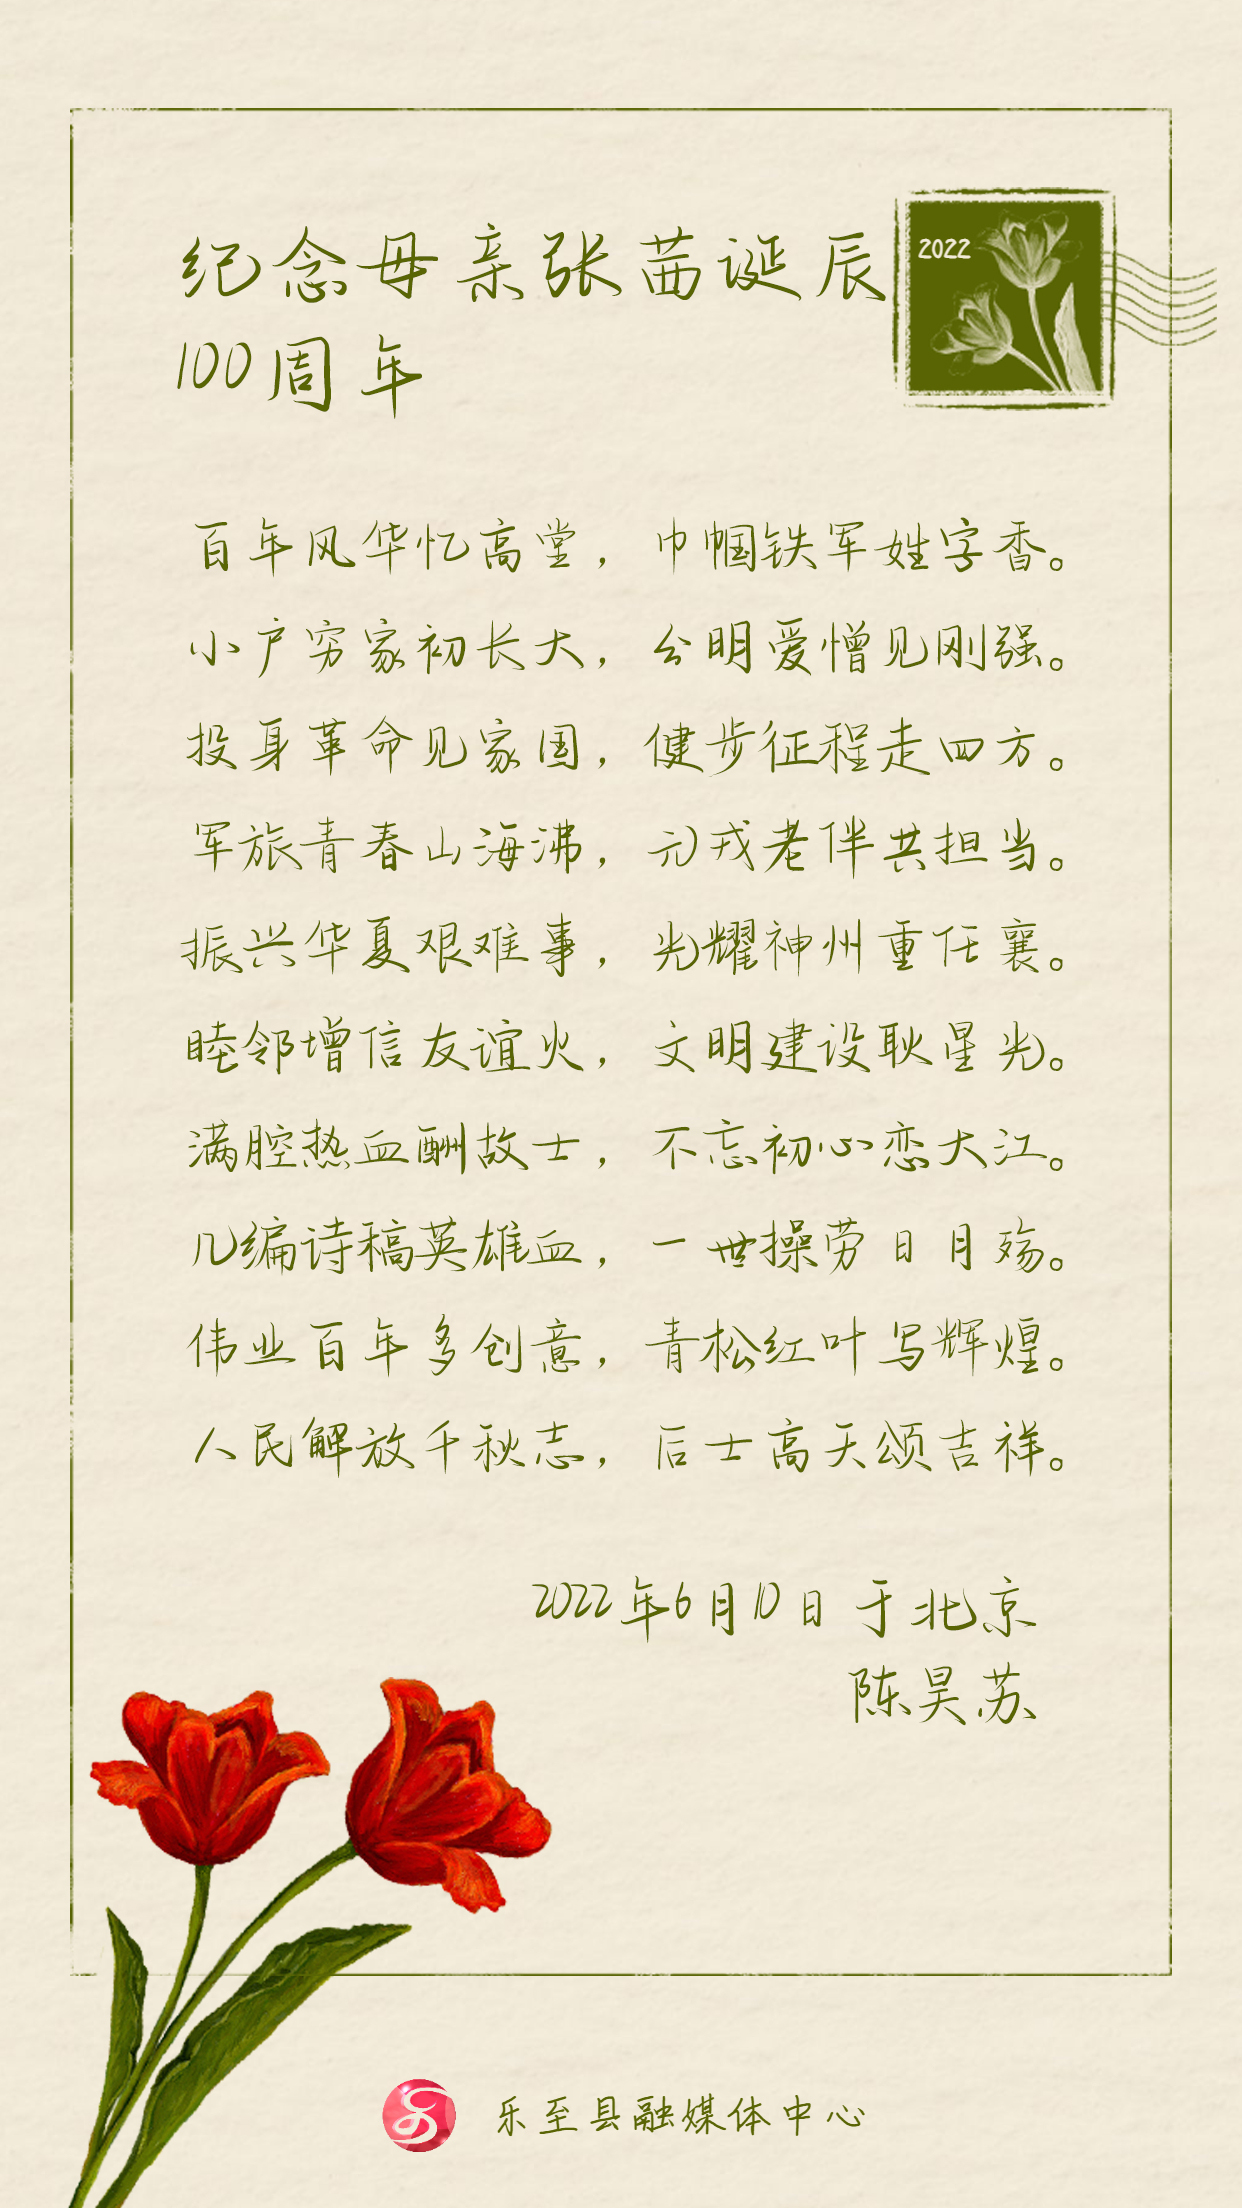 纪念母亲张茜诞辰
100周年
2022
百年风华忆高堂，巾帼铁军姓字香。
小户穷家初长大，公明爱憎见刚强。
投身革命见家国，健步征程走四方。
军旅青春山海沸，元戎老伴共担当。
振兴华夏艰难事，光耀神州重任襄。
睦邻增信友谊火，文明建设耿星光。
满腔热血酬故士，不忘初心恋大江。
几编诗稿英雄血，一世操劳日月殇。
伟业百年多创意，青松红叶写辉煌。
人民解放千秋志，后士高天颂吉祥。
2022年6月10日于北京
陈昊苏
乐至县融媒体中心